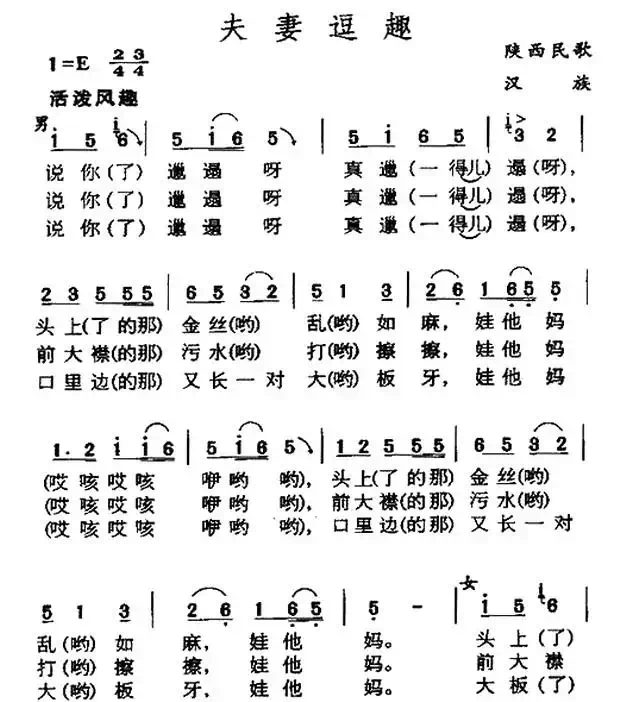 夫妻逗趣
1=E 2/4 3/4
陕西民歌
汉 族
活泼风趣
男
i 5 6 | 5 i 6 5 | 5 i 6 5 | 3 2 |
说你(了) 邋遢 呀 真邋(一得儿)遢(呀),
说你(了) 邋遢 呀 真邋(一得儿)遢(呀),
说你(了) 邋遢 呀 真邋(一得儿)遢(呀),
2 3 5 5 5 | 6 5 3 2 | 5 1 3 | 2 6 | 1 6 5 5 |
头上(了的那) 金丝(哟) 乱(哟)如麻, 娃他妈
前大襟(的那) 污水(哟) 打(哟)擦擦, 娃他妈
口里边(的那) 又长一对 大(哟)板牙, 娃他妈
1· 2 i i 6 | 5 i 6 5 | 1 2 5 5 5 | 6 5 3 2 |
(哎咳哎咳 咿哟 哟), 头上(了的那) 金丝(哟)
(哎咳哎咳 咿哟 哟), 前大襟(的那) 污水(哟)
(哎咳哎咳 咿哟 哟), 口里边(的那) 又长一对
女
5 1 3 | 2 6 1 6 5 | 5 - | i 5 6 |
乱(哟)如 麻, 娃他 妈。 头上(了)
打(哟)擦 擦, 娃他 妈。 前大襟
大(哟)板 牙, 娃他 妈。 大板(了)